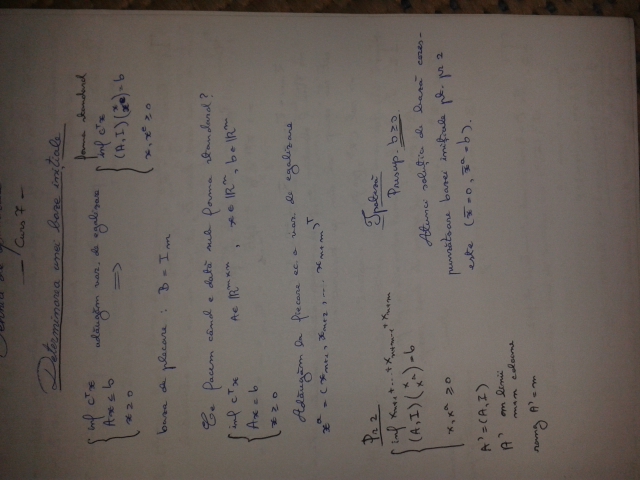 Tehnici de
— Curs 7 —
Determinarea unei baze inițiale
forma standard
inf cᵀx
Ax ≤ b
x ≥ 0
adăugăm var. de egalizare
⇒
inf cᵀx
(A, I)(x xᵉ) = b
x, xᵉ ≥ 0
baza de plecare : B = Iₘ
Ce facem când e dată sub forma standard?
inf cᵀx
Ax = b
x ≥ 0
A ∈ ℝᵐˣⁿ , x ∈ ℝⁿ, b ∈ ℝᵐ
Adăugăm la fiecare ec. o var. de egalizare
xᵃ = (xₙ₊₁, xₙ₊₂, ... xₙ₊ₘ)ᵀ
Pr 2
inf xₙ₊₁ + ... + xₙ₊ₘ₋₁ + xₙ₊ₘ
(A, I)(x xᵃ) = b
x, xᵃ ≥ 0
A' = (A, I)
A' m linii
m+n coloane
rang A' = m
Ipoteză
Presup. b ≥ 0
Atunci soluția de bază cores-
punzătoare bazei inițiale pt. pr 2
este (x̄ = 0, x̄ᵃ = b).